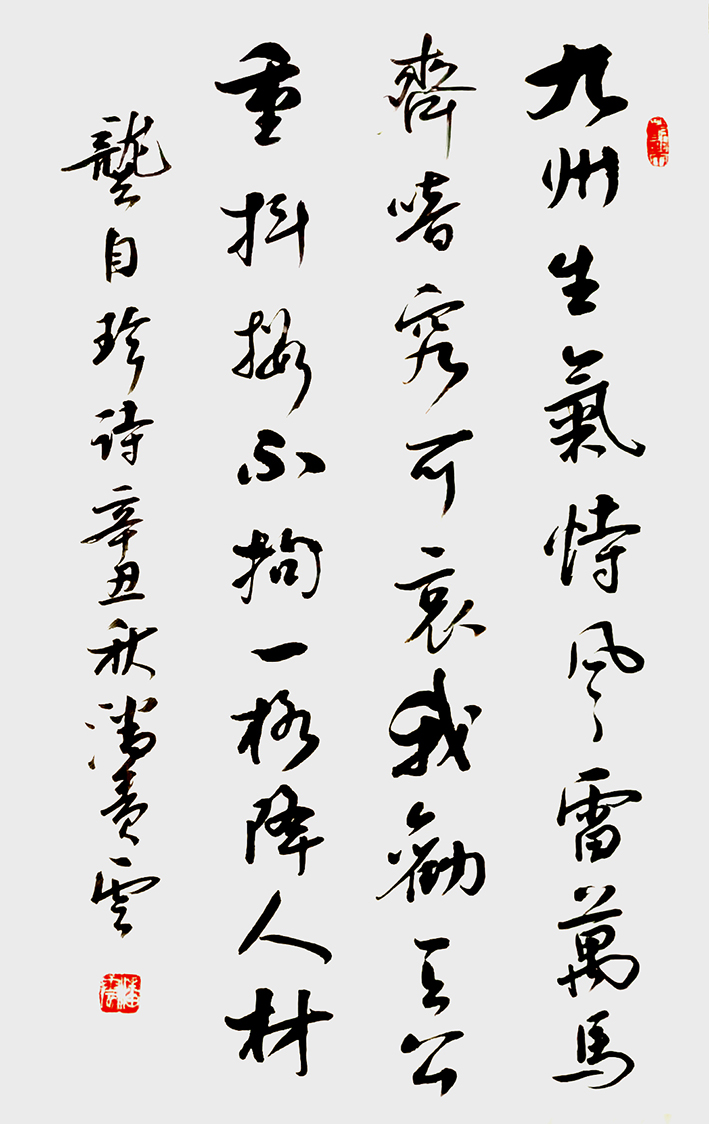 九州生氣恃風雷萬馬
齊喑究可哀我勸天公
重抖擻不拘一格降人材
龔自珍詩辛丑秋潘雲